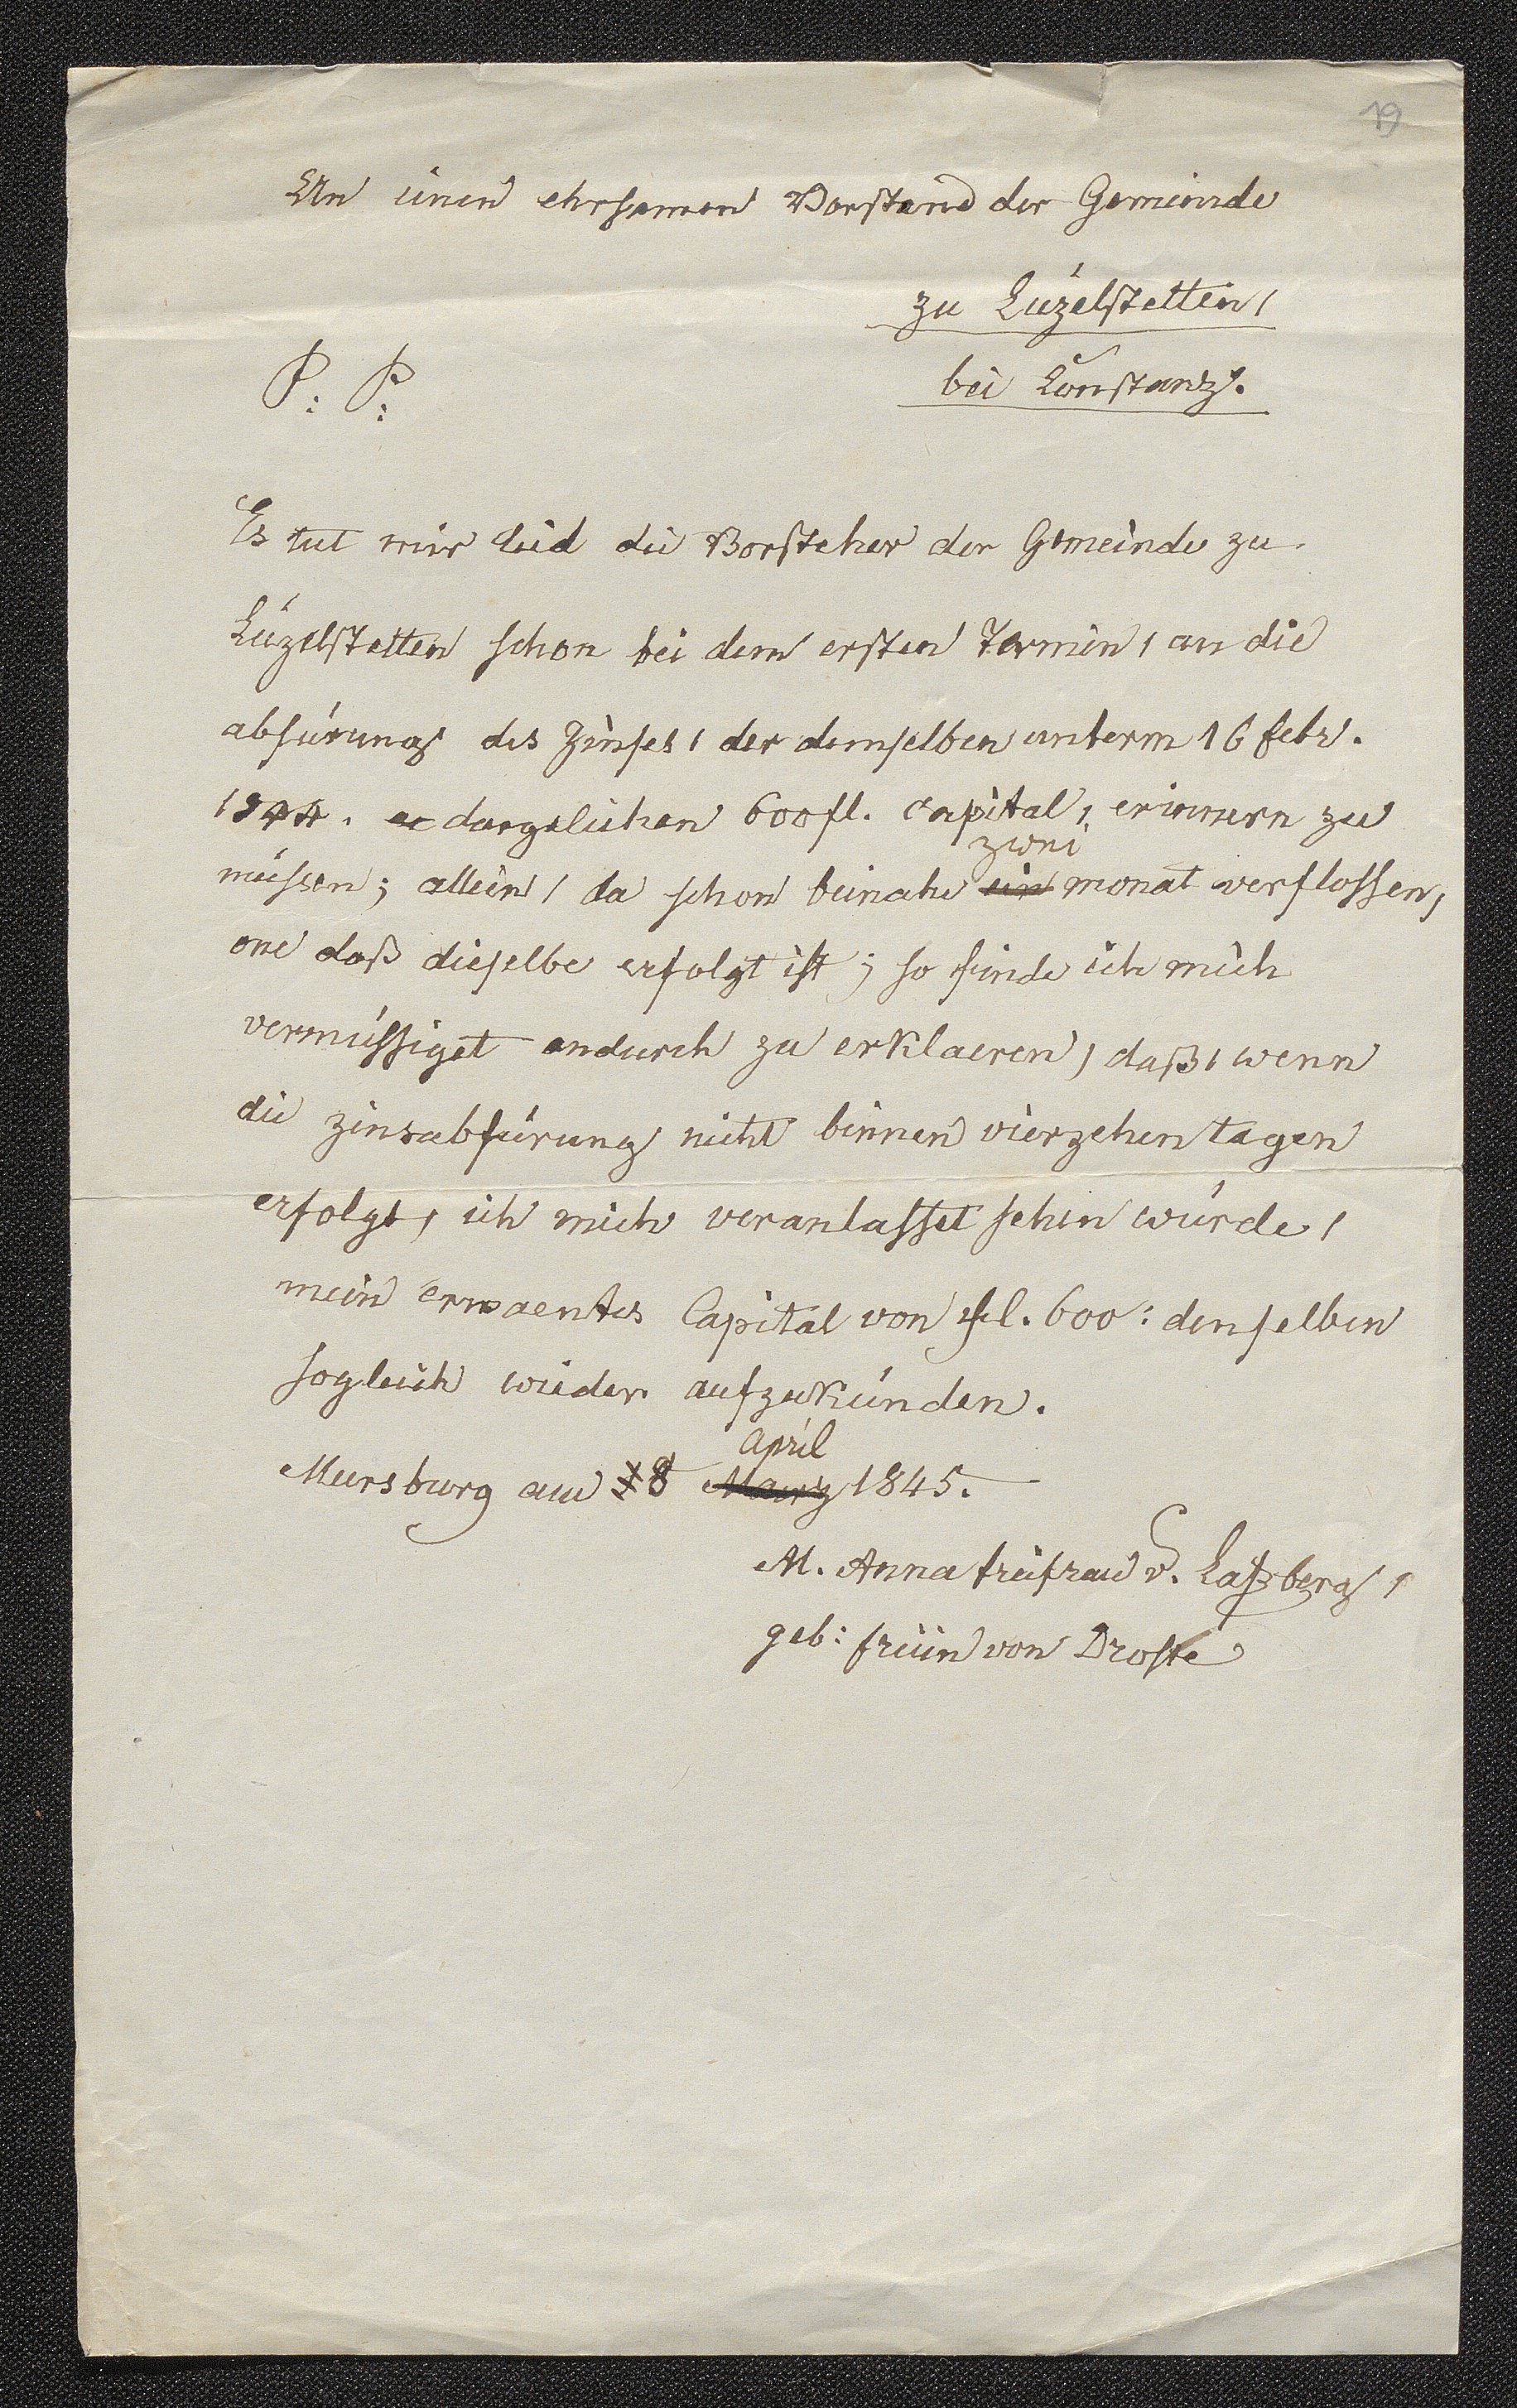 19
An einen ehrsamen Vorstand der Gemeinde
zu Lüzelstetten,
bei Constanz.
P: P:
Es tut mir leid die Vorsteher der Gemeinde zu
Lüzelstetten schon bei dem ersten Termin, an die
abfürung des Zinses, der demselben unterm 16 febr.
1844. dargeliehen 600 fl. Capital, erinnern zu
müssen; allein, da schon beinahe ein zwei monat verflossen,
one daß dieselbe erfolgt ist; so finde ich mich
vermüssiget andurch zu erklaeren, daß, wenn
die zinsabfürung nicht binnen vierzehen tagen
erfolgt, ich mich veranlasset sehen würde,
mein erwaentes Capital von fl. 600: denselben
sogleich wieder aufzukünden.
Mersburg am 8 Maerz April 1845.
M. Anna freifrau v. Laßberg,
geb: freiin von Droste